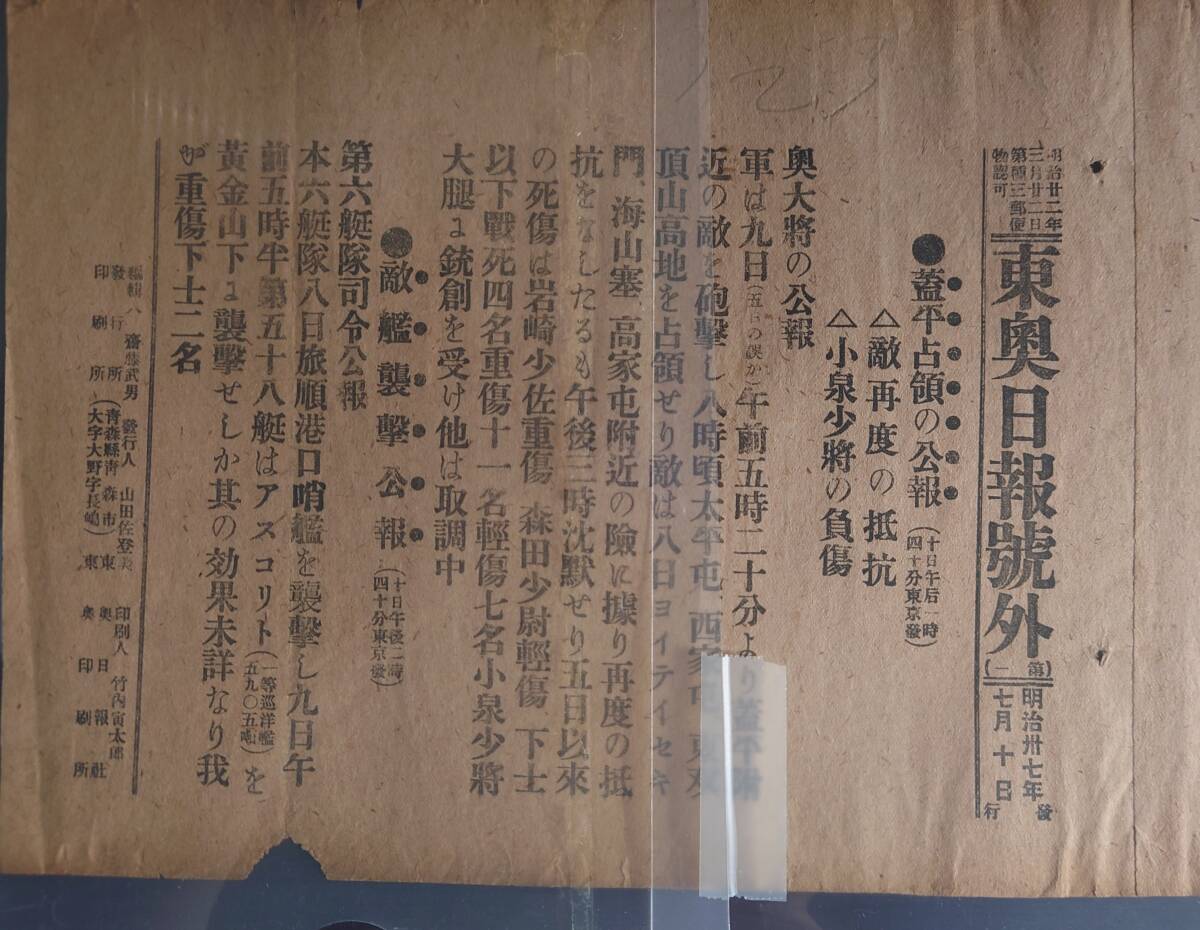 明治廿二年
三月廿二日
第三種郵便
物認可
東奥日報號外
(第二)
明治卅七年
七月十日發行
●蓋平占領の公報(十日午后一時四十分東京發)
△敵再度の抵抗
△小泉少將の負傷
奥大將の公報
軍は九日(五日の誤か)午前五時二十分より蓋平附
近の敵を砲擊し八時頃太平屯、西家屯、東双
頂山高地を占領せり敵は八日ヨイテイセキ
門、海山塞、高家屯附近の險に據り再度の抵
抗をなしたるも午後三時沈默せり五日以來
の死傷は岩崎少佐重傷、森田少尉輕傷、下士
以下戰死四名重傷十一名輕傷七名小泉少將
大腿に銃創を受け他は取調中
●敵艦襲擊公報(十日午後二時四十分東京發)
第六艇隊司令公報
本六艇隊八日旅順港口哨艦を襲擊し九日午
前五時半第五十八艇はアスコリト(一等巡洋艦五九〇五噸)を
黃金山下に襲擊せしか其の効果未詳なり我
が重傷下士二名
編輯人 齋藤武男 發行人 山田佐登美 印刷人 竹內寅太郎
發行所(青森縣青森市大字大野字長嶋)東奥日報社
印刷所 東奥印刷所